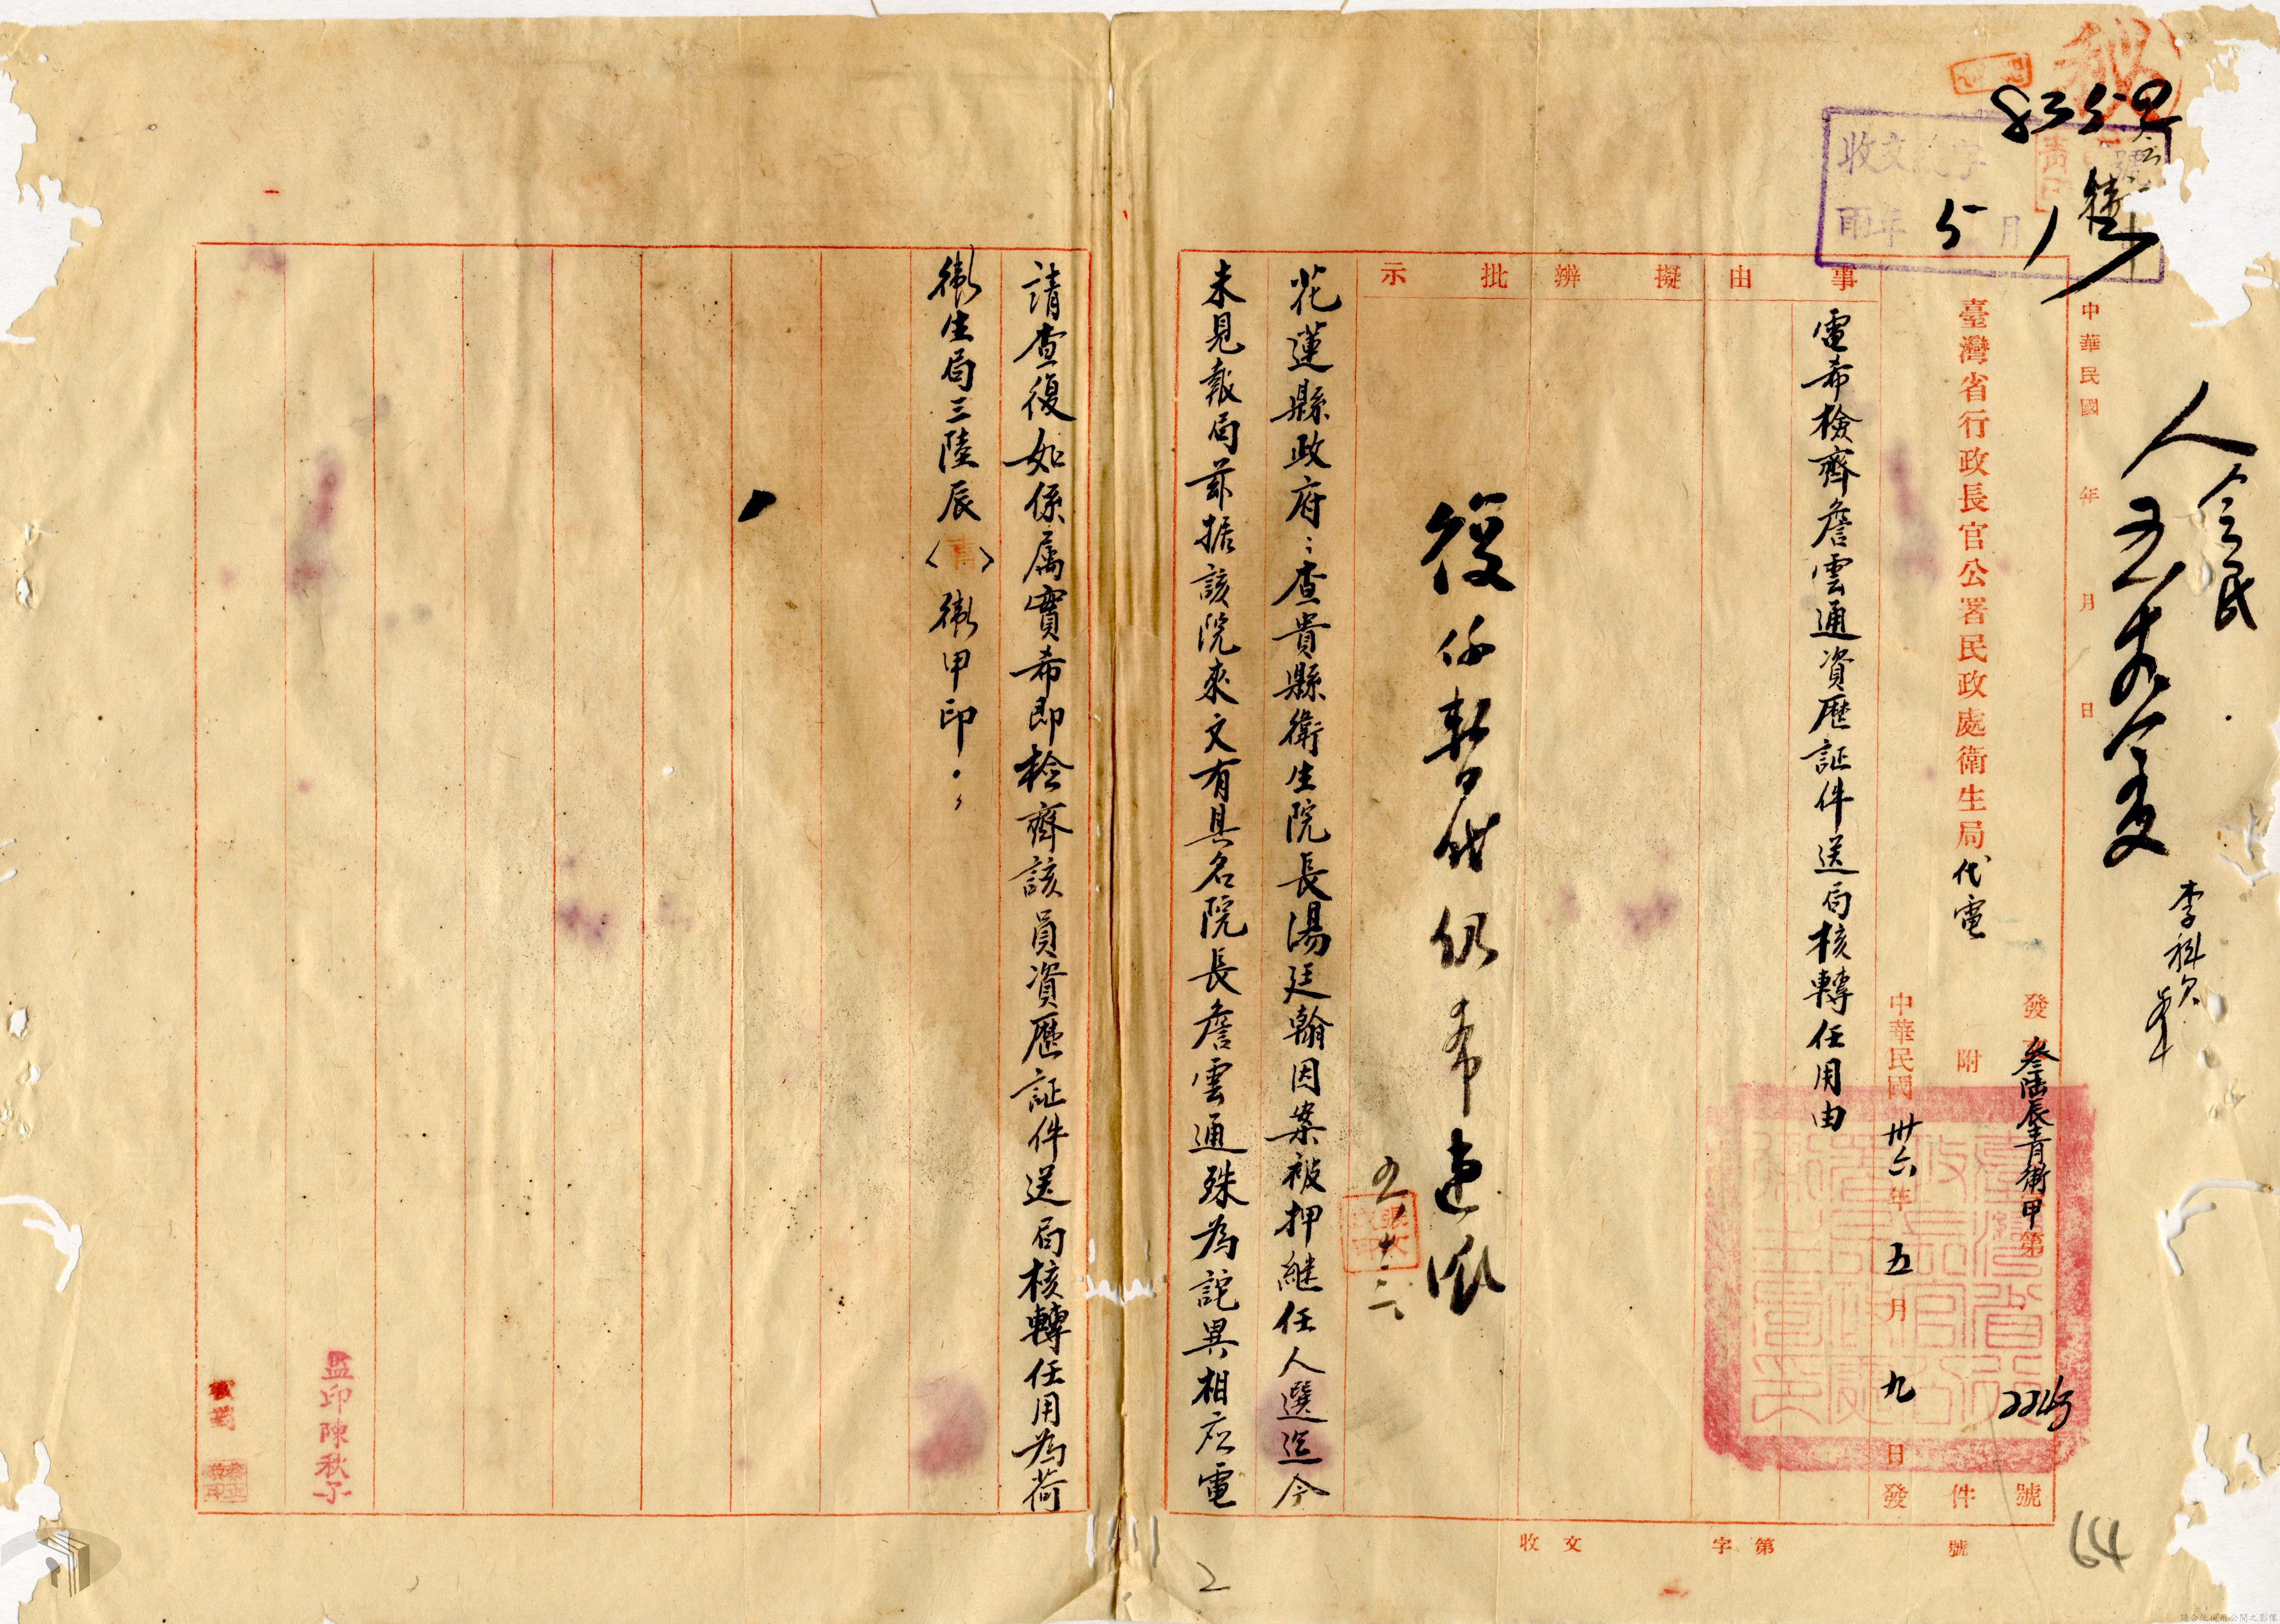 人
令民
李科
收文 字 號
年 5 月 1
中華民國 年 月 日
臺灣省行政長官公署民政處衛生局代電
發 叁陸辰青衛甲第 號
附 件
中華民國卅六年五月九日發
事由
電希檢齊詹雲通資歷証件送局核轉任用由
擬辦
批示
復仍暫代仍希速派
花蓮縣政府：查貴縣衛生院長湯廷翰因案被押繼任人選迄今
未見報局茲据該院來文有具名院長詹雲通殊為詫異相应電
請查復如係屬實希即检齊該員資歷証件送局核轉任用為荷
衛生局三陸辰〈青〉衛甲印
監印陳秋子
收文 字第 號
64
2